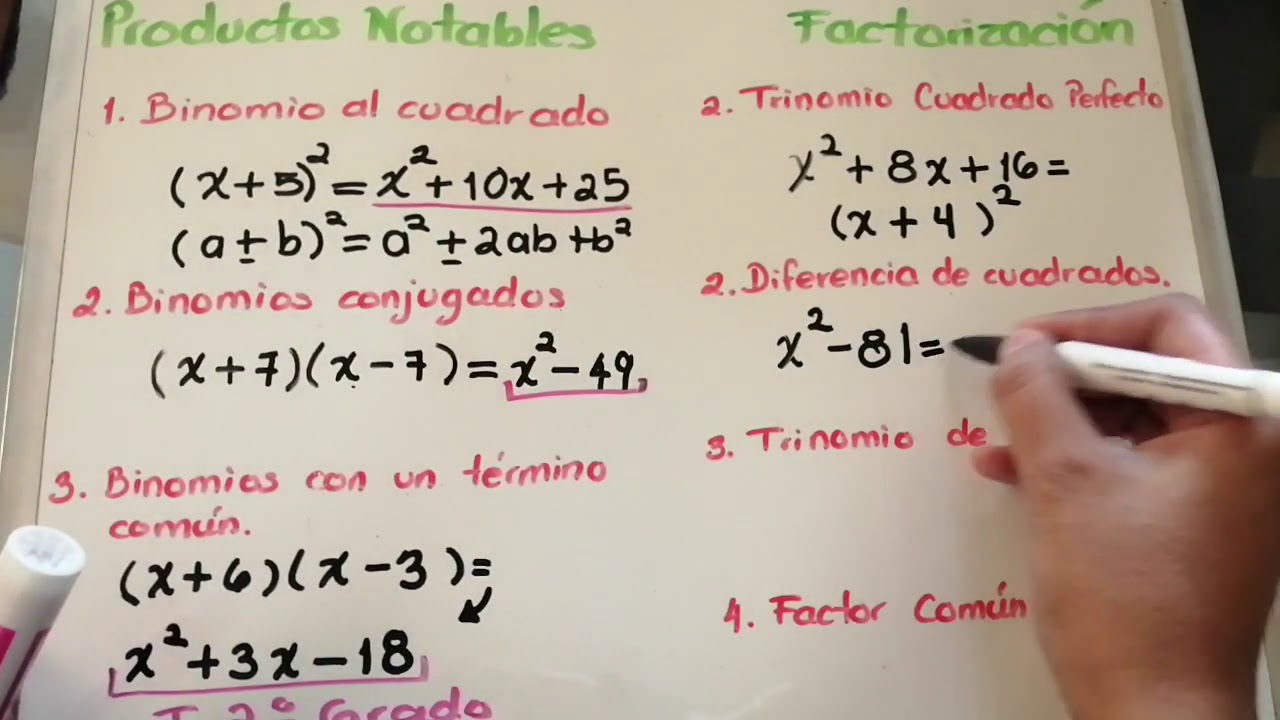 Productos Notables
1. Binomio al cuadrado
(x+5)² = x² + 10x + 25
(a ± b)² = a² ± 2ab + b²
2. Binomios conjugados
(x+7)(x-7) = x² - 49
3. Binomios con un término
común.
(x+6)(x-3) =
x² + 3x - 18
T. 2° Grado
Factorización
2. Trinomio Cuadrado Perfecto
x² + 8x + 16 =
(x + 4)²
2. Diferencia de cuadrados.
x² - 81 =
3. Trinomio de
4. Factor Común